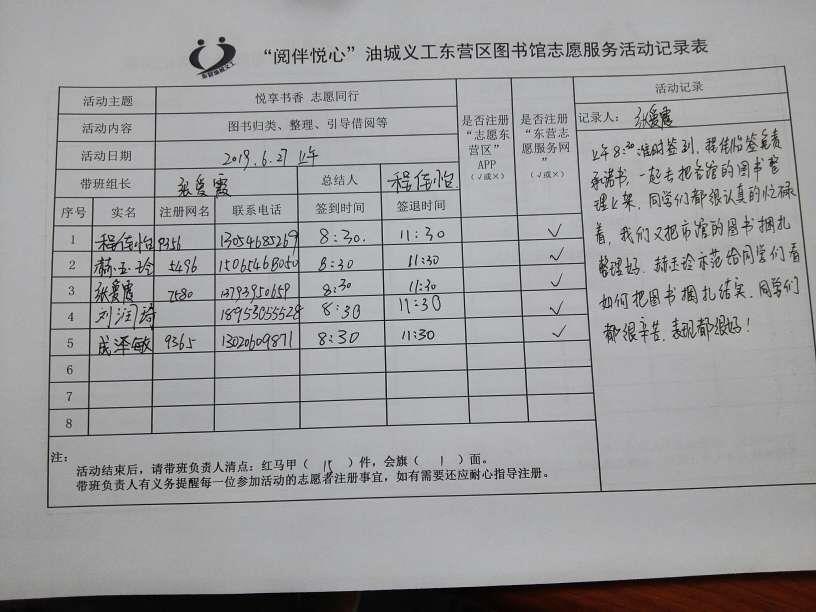 东营油城义工
“阅伴悦心”油城义工东营区图书馆志愿服务活动记录表
活动主题 悦享书香 志愿同行
活动内容 图书归类、整理、引导借阅等
活动日期 2019.6.27 上午
带班组长 张爱霞 总结人 程佳怡
是否注册“志愿东营区”APP（√或×）
是否注册“东营志愿服务网”（√或×）
序号 实名 注册网名 联系电话 签到时间 签退时间
1 程佳怡 9356 13054685269 8:30. 11:30 √
2 赫玉玲 5496 15065468050 8:30 11:30 √
3 张爱霞 7580 13793950659 8:30 11:30 √
4 刘润琦 18953055528 8:30 11:30 √
5 成泽敏 9365 13020609871 8:30 11:30 √
6
7
8
注：
活动结束后，请带班负责人清点：红马甲（ 15 ）件，会旗（ 1 ）面。
带班负责人有义务提醒每一位参加活动的志愿者注册事宜，如有需要还应耐心指导注册。
活动记录
记录人： 张爱霞
上午8:30准时签到，程佳怡签免责
承诺书，一起去把各馆的图书整
理上架，同学们都很认真的忙碌
着，我们又把市馆的图书捆扎
整理好，赫玉玲示范给同学们看
如何把图书捆扎结实，同学们
都很辛苦，表现都很好！